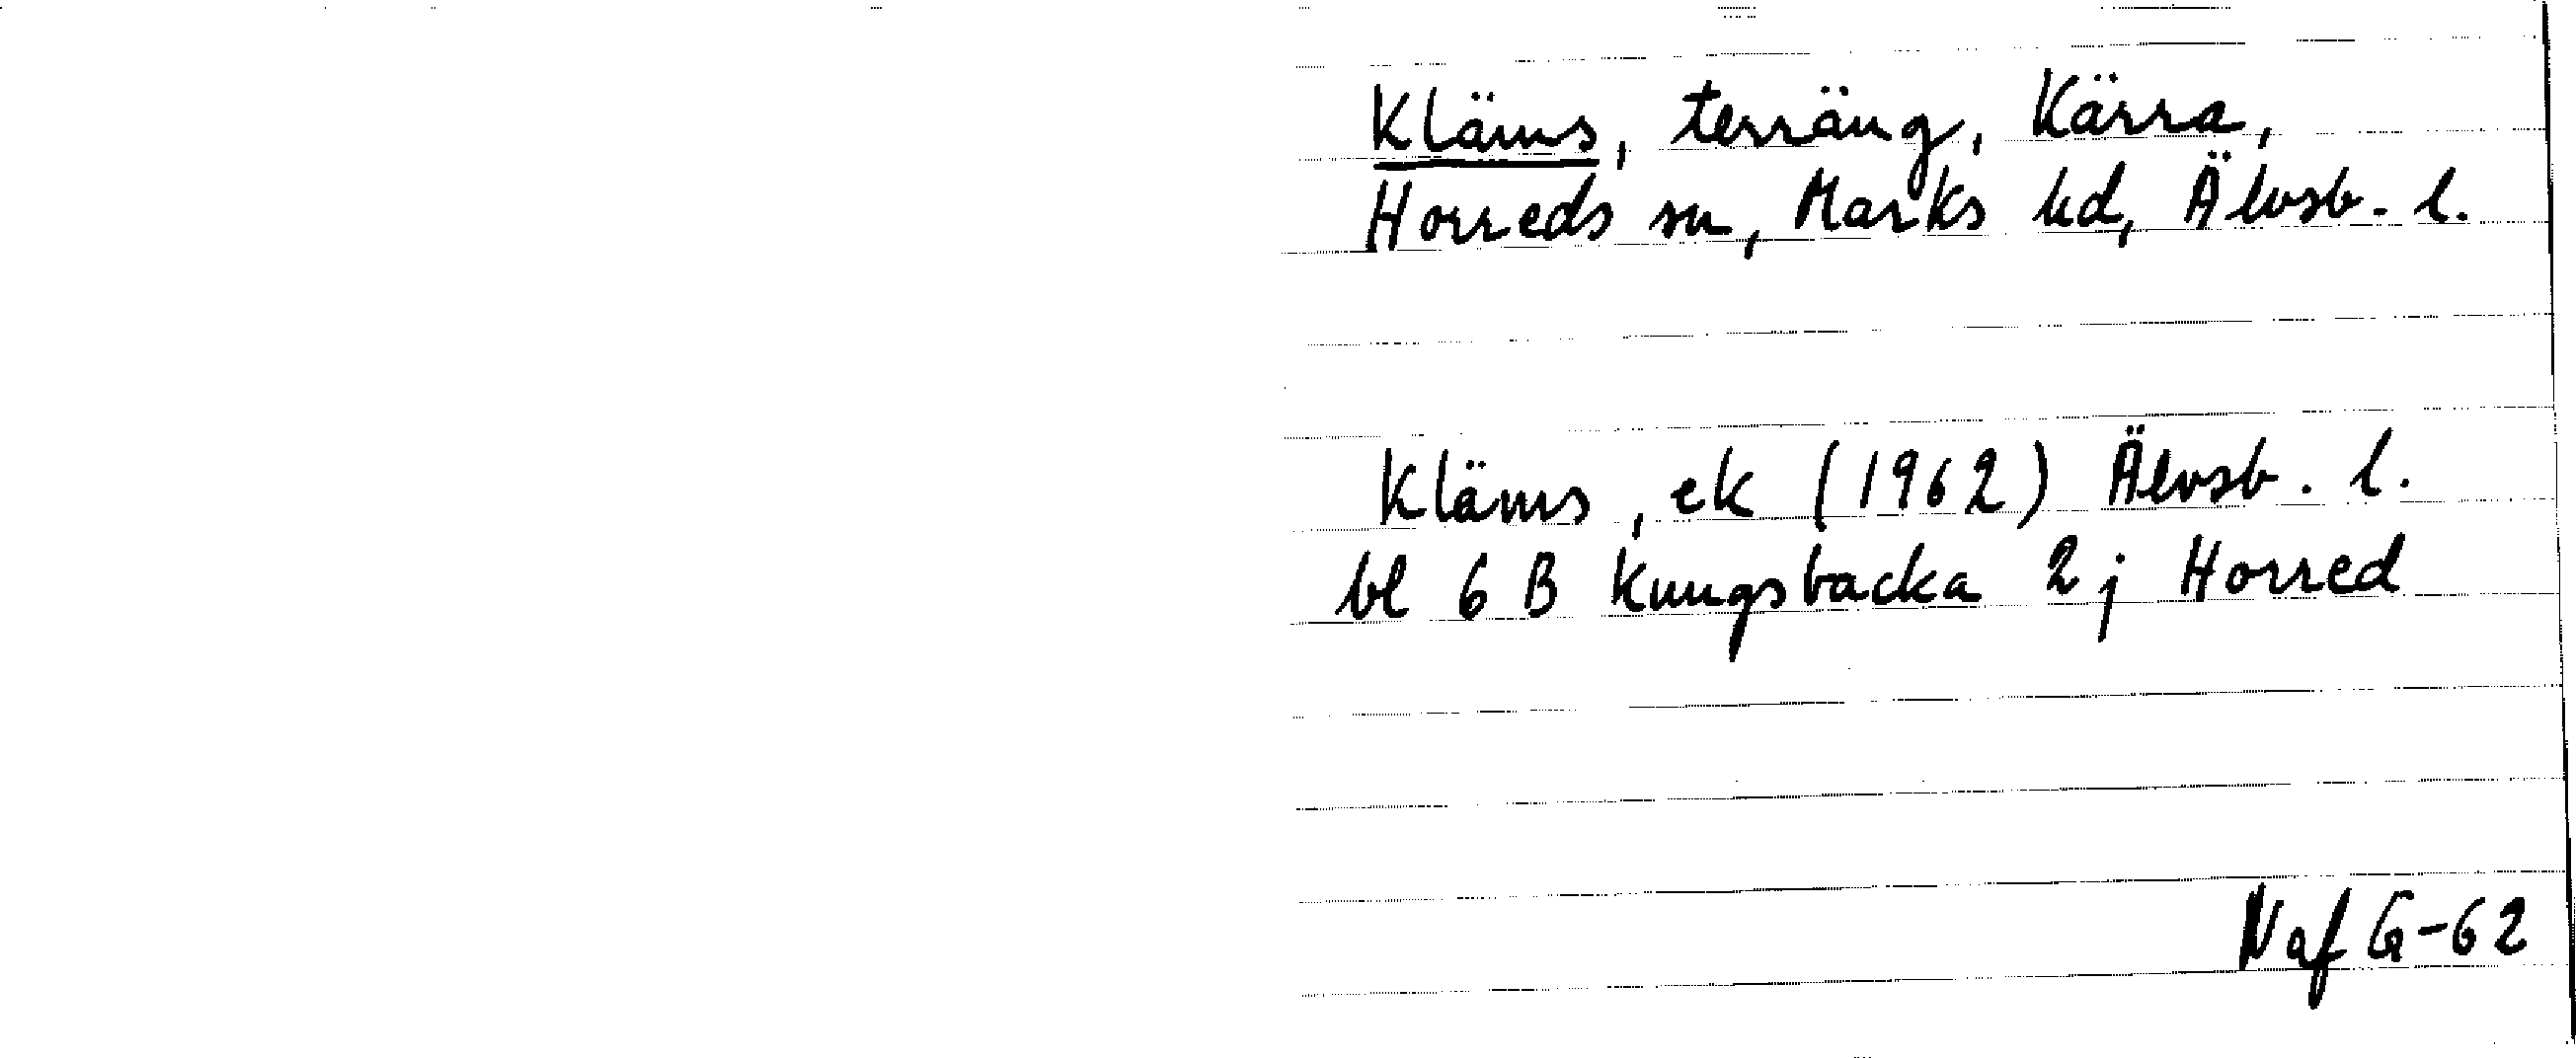 Kläms, terräng, Kärra,
Horreds sn, Marks hd, Älvsb. l.
Kläms, ek (1962) Älvsb. l.
bl 6 B Kungsbacka 2 j Horred
Naf G-62